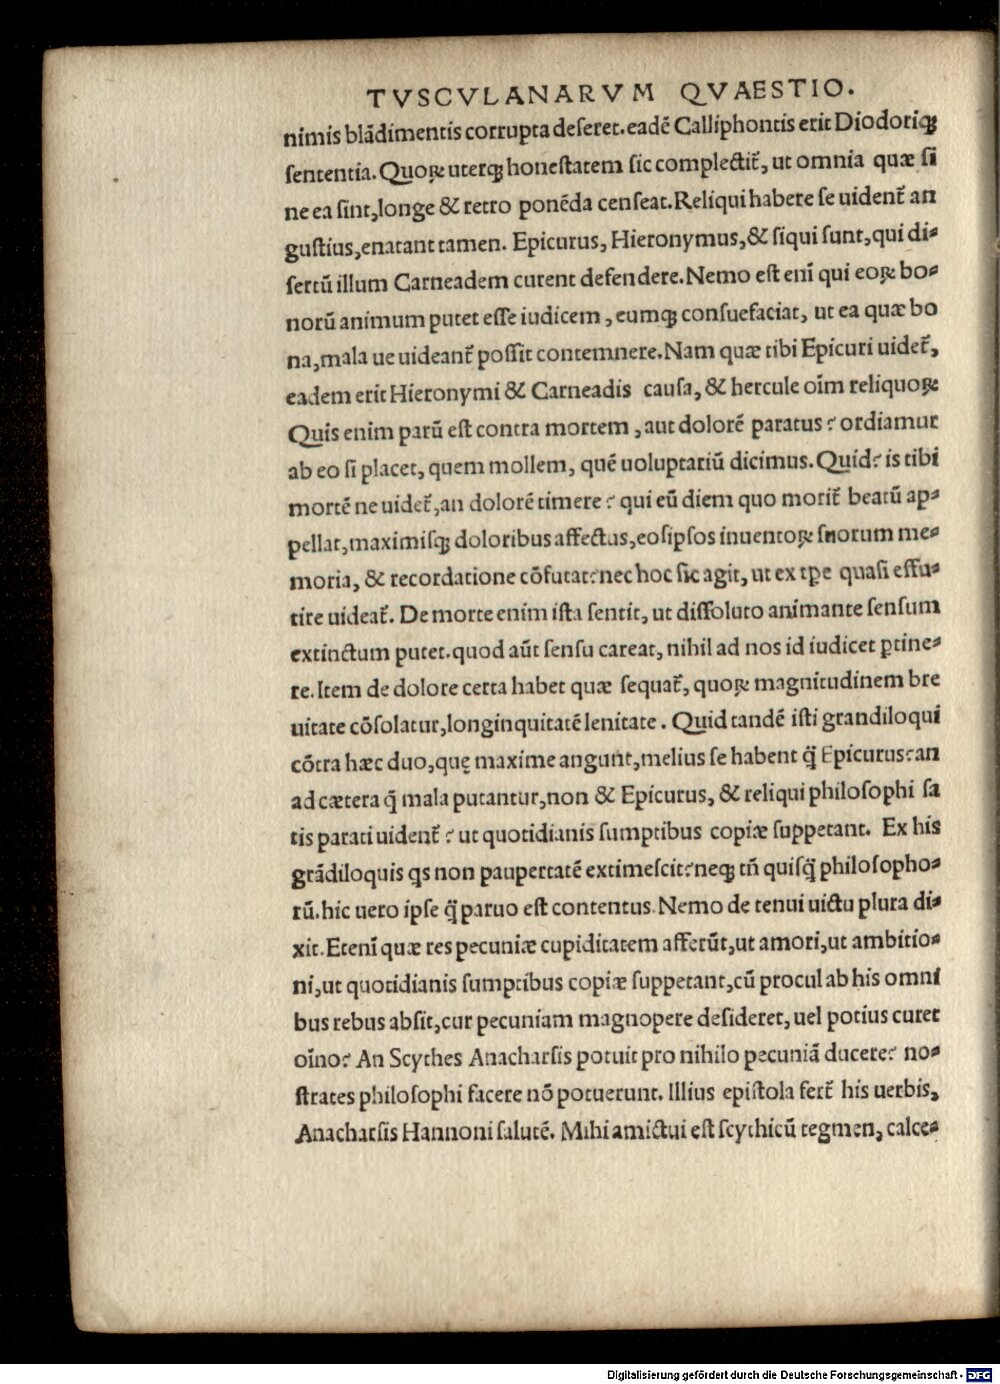 TVSCVLANARVM QVAESTIO.
nimis blãdimentis corrupta deſeret. eadẽ Calliphontis erit Diodoriqꝫ
ſententia. Quoꝝ uterqꝫ honeſtatem ſic complectit᷑, ut omnia quæ ſi
ne ea ſint, longe & retro ponẽda cenſeat. Reliqui habere ſe uident᷑ an
guſtius, enatant tamen. Epicurus, Hieronymus, & ſiqui ſunt, qui di-
ſertũ illum Carneadem curent defendere. Nemo eſt enĩ qui eoꝝ bo-
norũ animum putet eſſe iudicem, eumqꝫ conſuefaciat, ut ea quæ bo
na, mala ue uideant᷑ poſſit contemnere. Nam quæ tibi Epicuri uidet᷑,
eadem erit Hieronymi & Carneadis cauſa, & hercule oĩm reliquoꝝ
Quis enim parũ eſt contra mortem, aut dolorẽ paratus? ordiamur
ab eo ſi placet, quem mollem, quẽ uoluptariũ dicimus. Quid? is tibi
mortẽ ne uidet᷑, an dolorẽ timere? qui eũ diem quo morit᷑ beatũ ap-
pellat, maximiſqꝫ doloribus affectus, eoſipſos inuentoꝝ ſnorum me-
moria, & recordatione cõfutat? nec hoc ſic agit, ut ex tꝑe quaſi effu-
tire uideat᷑. De morte enim iſta ſentit, ut diſſoluto animante ſenſum
extinctum putet. quod aũt ſenſu careat, nihil ad nos id iudicet ꝑtine-
re. Item de dolore certa habet quæ ſequat᷑, quoꝝ magnitudinem bre
uitate cõſolatur, longinquitatẽ lenitate. Quid tandẽ iſti grandiloqui
cõtra hæc duo, quę maxime angunt, melius ſe habent q̃ Epicurus? an
ad cætera q̃ mala putantur, non & Epicurus, & reliqui philoſophi ſa
tis parati uident᷑? ut quotidianis ſumptibus copiæ ſuppetant. Ex his
grãdiloquis qs non paupertatẽ extimeſcit? neqꝫ tñ quiſq̃ philoſopho-
rũ. hic uero ipſe q̃ paruo eſt contentus. Nemo de tenui uictu plura di-
xit. Etenĩ quæ res pecuniæ cupiditatem afferũt, ut amori, ut ambitio-
ni, ut quotidianis ſumptibus copiæ ſuppetant, cũ procul ab his omni
bus rebus abſit, cur pecuniam magnopere deſideret, uel potius curet
oĩno? An Scythes Anacharſis potuit pro nihilo pecuniã ducere? no-
ſtrates philoſophi facere nõ potuerunt. Illius epiſtola fert᷑ his uerbis,
Anacharſis Hannoni ſalutẽ. Mihi amictui eſt ſcythicũ tegmen, calce-
Digitalisierung gefördert durch die Deutsche Forschungsgemeinschaft - DFG